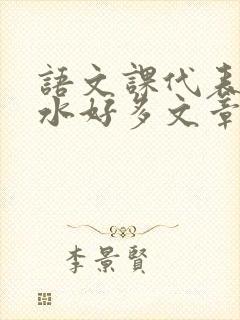 語文課代表
水好多文章
李景賢